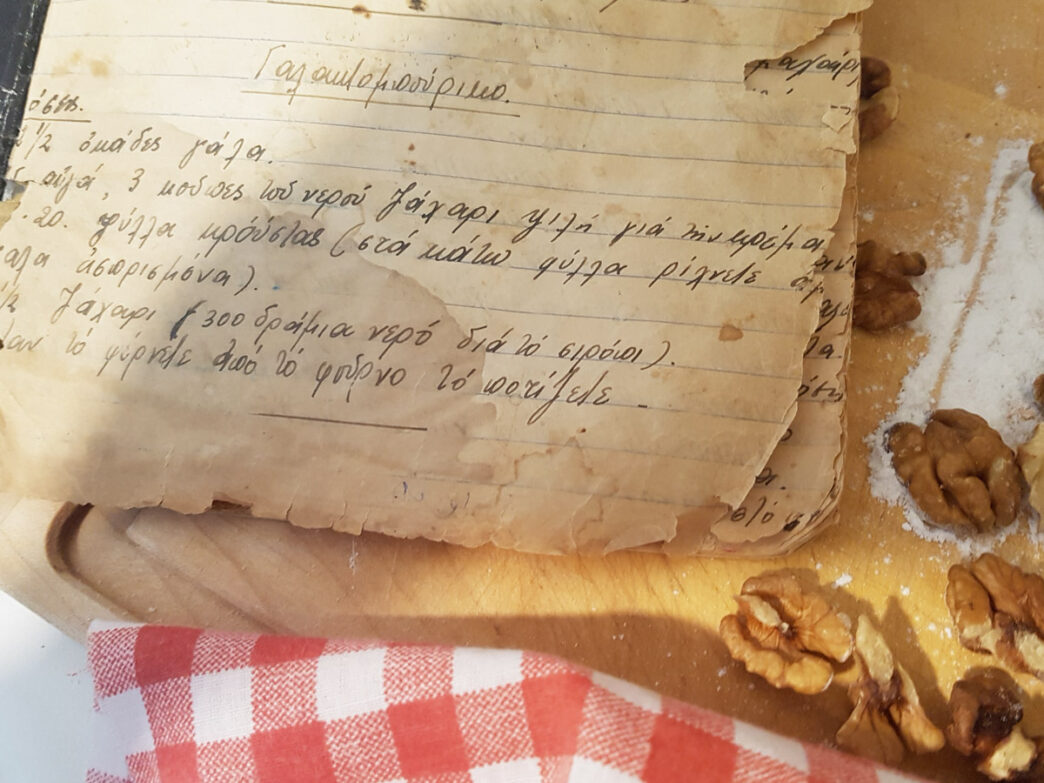 Γαλακτομπούρικο.
όσις.
1/2 ὀκάδες γάλα.
αὐγά, 3 κούπες τοῦ νεροῦ ζάχαρι ψιλή γιά τήν κρέμα
20. φύλλα κρούστας (στά κάτω φύλλα ρίχνετε
ἀσπρισμένα).
ζάχαρι (300 δράμια νερό διά τό σιρόπι).
τό φέρνετε ἀπό τό φοῦρνο τό ποτίζετε -